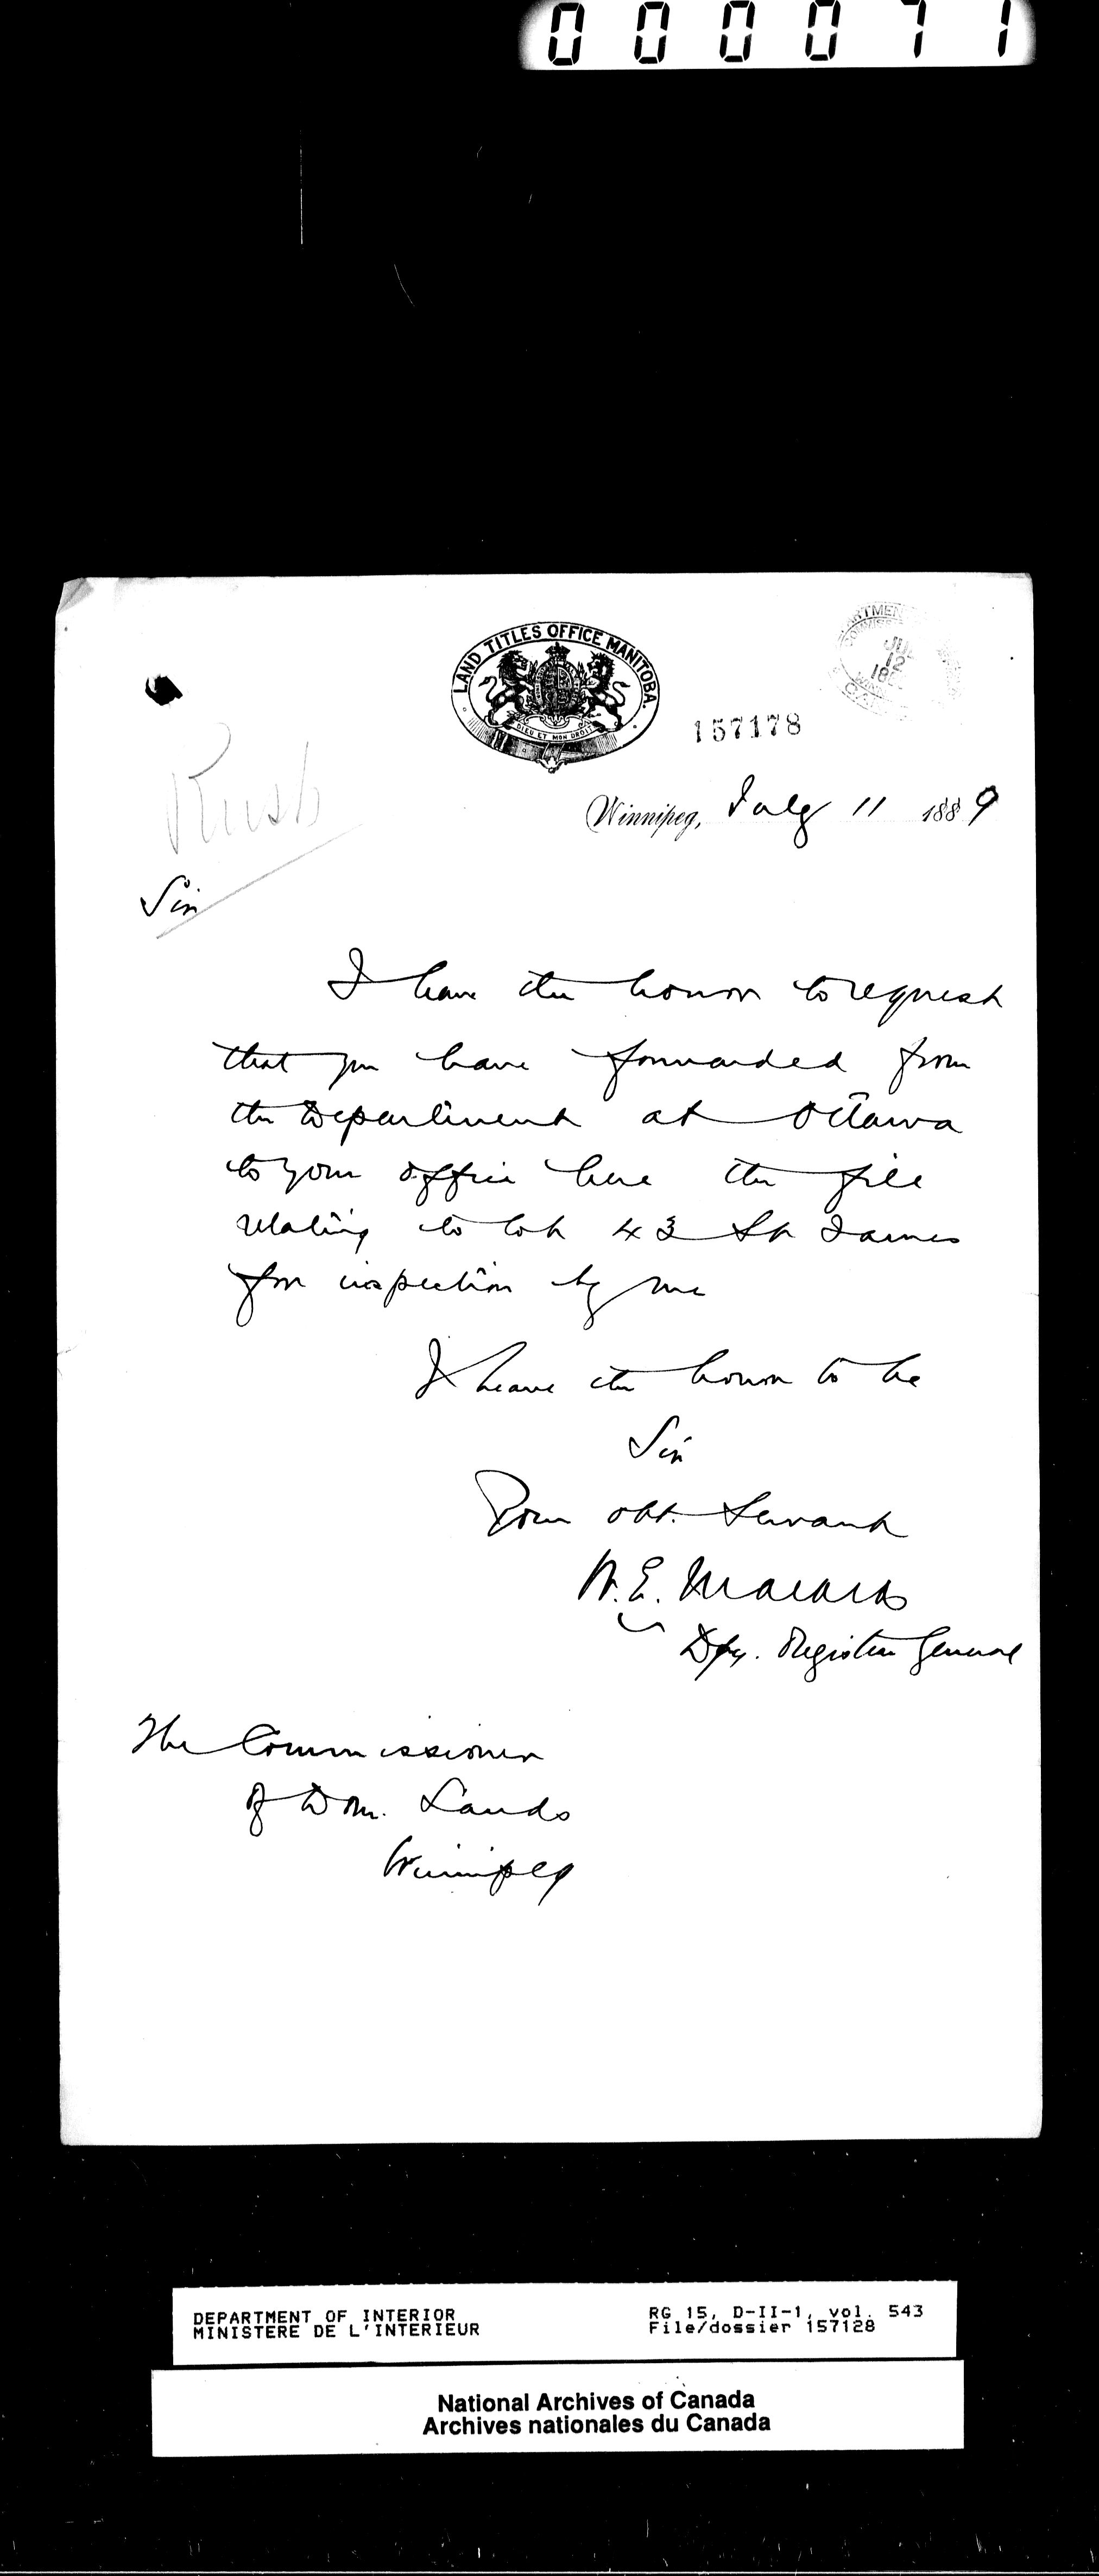 000071
LAND TITLES OFFICE MANITOBA.
DIEU ET MON DROIT
JUL
12
157178
Rush
Winnipeg, July 11 1889
Sir
I have the honor to request
that you have forwarded from
the Department at Ottawa
to your office here the file
relating to lot 43 St James
for inspection by me
I have the honor to be
Sir
Your obt. Servant
W. E. Macara
Dpy. Registrar General
The Commissioner
of Dom. Lands
Winnipeg
DEPARTMENT OF INTERIOR
MINISTERE DE L'INTERIEUR
RG 15, D-II-1, vol. 543
File/dossier 157128
National Archives of Canada
Archives nationales du Canada